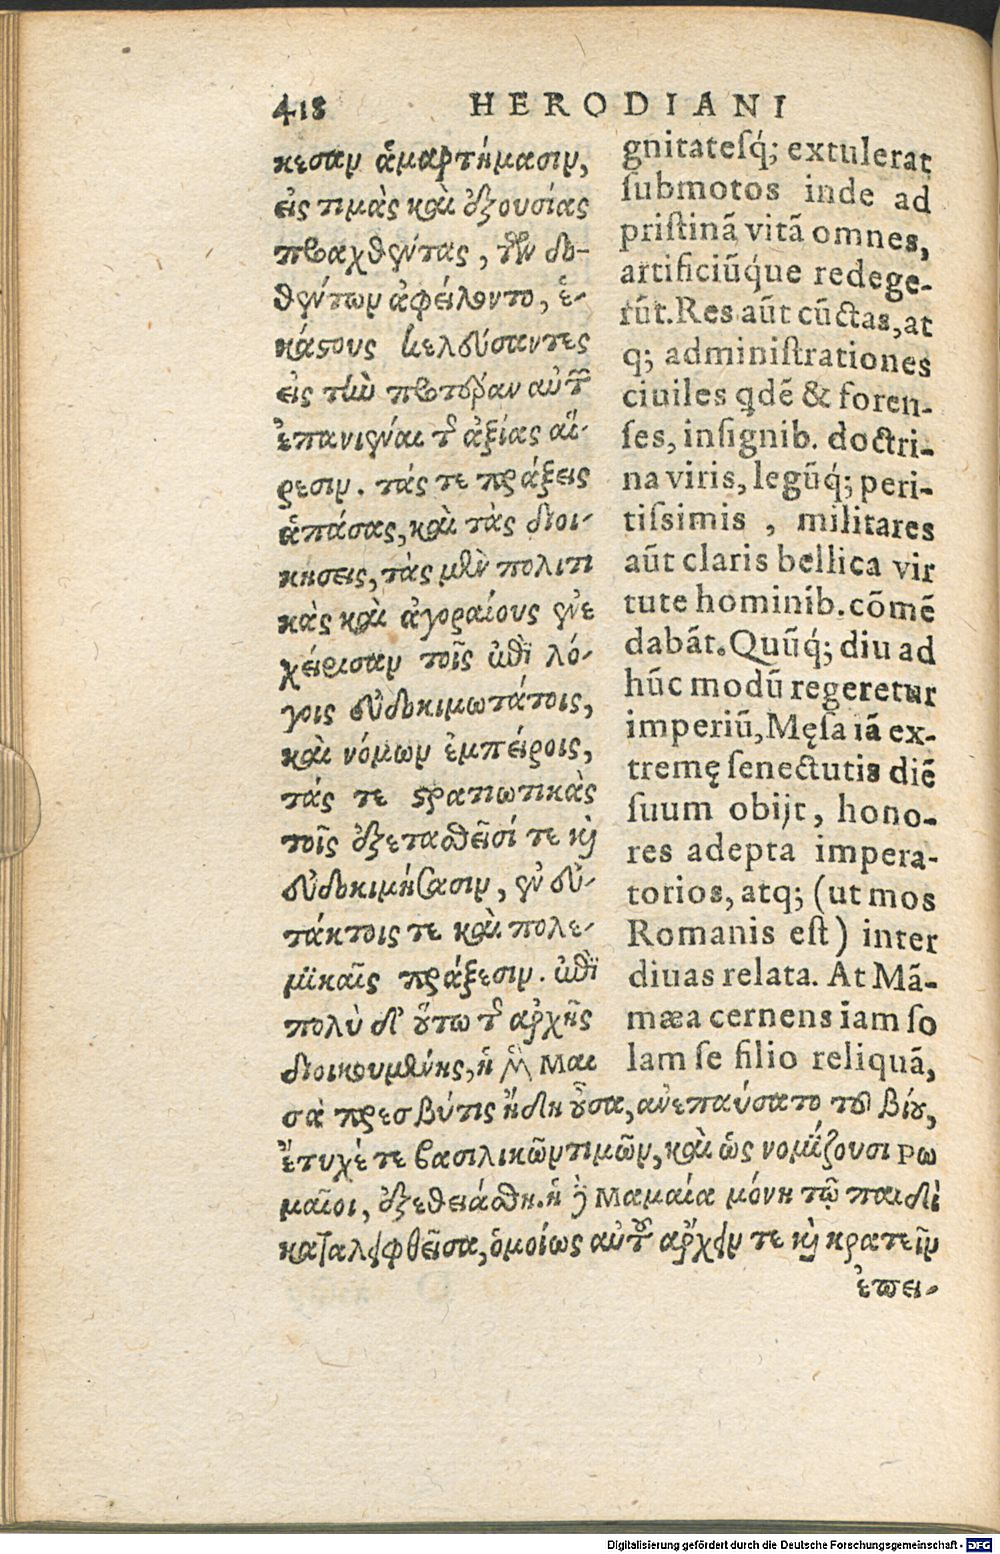 418 HERODIANI
κεσαν ἁμαρτήμασιν,
εἰς τιμὰς καὶ ἐξουσίας
προαχθέντας, τῶν δο-
θέντων ἀφείλοντο, ἑ-
κάστους κελεύσαντες
εἰς τὴν προτέραν αὐτῶν
ἐπανιέναι τῆς ἀξίας αἵ-
ρεσιν. τάς τε πράξεις
ἁπάσας, καὶ τὰς διοι-
κήσεις, τὰς μὲν πολιτι
κὰς καὶ ἀγοραίους ἐνε
χείρισαν τοῖς ἐπὶ λό-
γοις εὐδοκιμωτάτοις,
καὶ νόμων ἐμπείροις,
τάς τε στρατιωτικὰς
τοῖς ἐξετασθεῖσί τε καὶ
εὐδοκιμήσασιν, ἐν εὐ-
τάκτοις τε καὶ πολε-
μικαῖς πράξεσιν. ἐπὶ
πολὺ δ' οὕτω τῆς ἀρχῆς
διοικουμένης, ἡ μὲν Μαι
σὰ πρεσβύτις ἤδη οὖσα, ἀνεπαύσατο τοῦ βίου,
ἔτυχέ τε βασιλικῶν τιμῶν, καὶ ὡς νομίζουσι Ρω
μαῖοι, ἐξεθειάσθη. ἡ δὲ Μαμαία μόνη τῷ παιδὶ
καταλειφθεῖσα, ὁμοίως αὐτοῦ ἄρχειν τε καὶ κρατεῖν
ἐπει-
gnitatesq́; extulerat
submotos inde ad
pristinã vitã omnes,
artificiũq́ue redege-
rũt. Res aũt cũctas, at
q; administrationes
ciuiles qdẽ & foren-
ses, insignib. doctri-
na viris, legũq́; peri-
tissimis , militares
aũt claris bellica vir
tute hominib. cõmẽ
dabãt. Quũq́; diu ad
hũc modũ regeretur
imperiũ, Męsa iã ex-
tremę senectutis diẽ
suum obijt, hono-
res adepta impera-
torios, atq; (ut mos
Romanis est) inter
diuas relata. At Mã-
mæa cernens iam so
lam se filio reliquã,
Digitalisierung gefördert durch die Deutsche Forschungsgemeinschaft - DFG